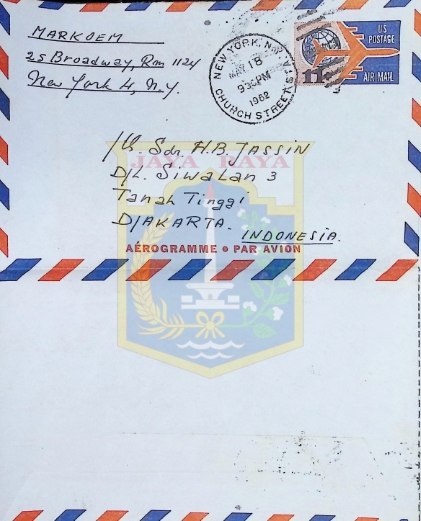 MARKDEM
25 Broadway, Rm 1124
New York 4, N.Y.
NEW YORK, N.Y.
MAY 18
930 PM
1962
CHURCH STREET STA.
11¢
US
POSTAGE
AIR MAIL
JAYA RAYA
Yth. Sdr. H.B. JASSIN
Djl. Siwalan 3
Tanah Tinggi
DJAKARTA. INDONESIA.
AÉROGRAMME • PAR AVION